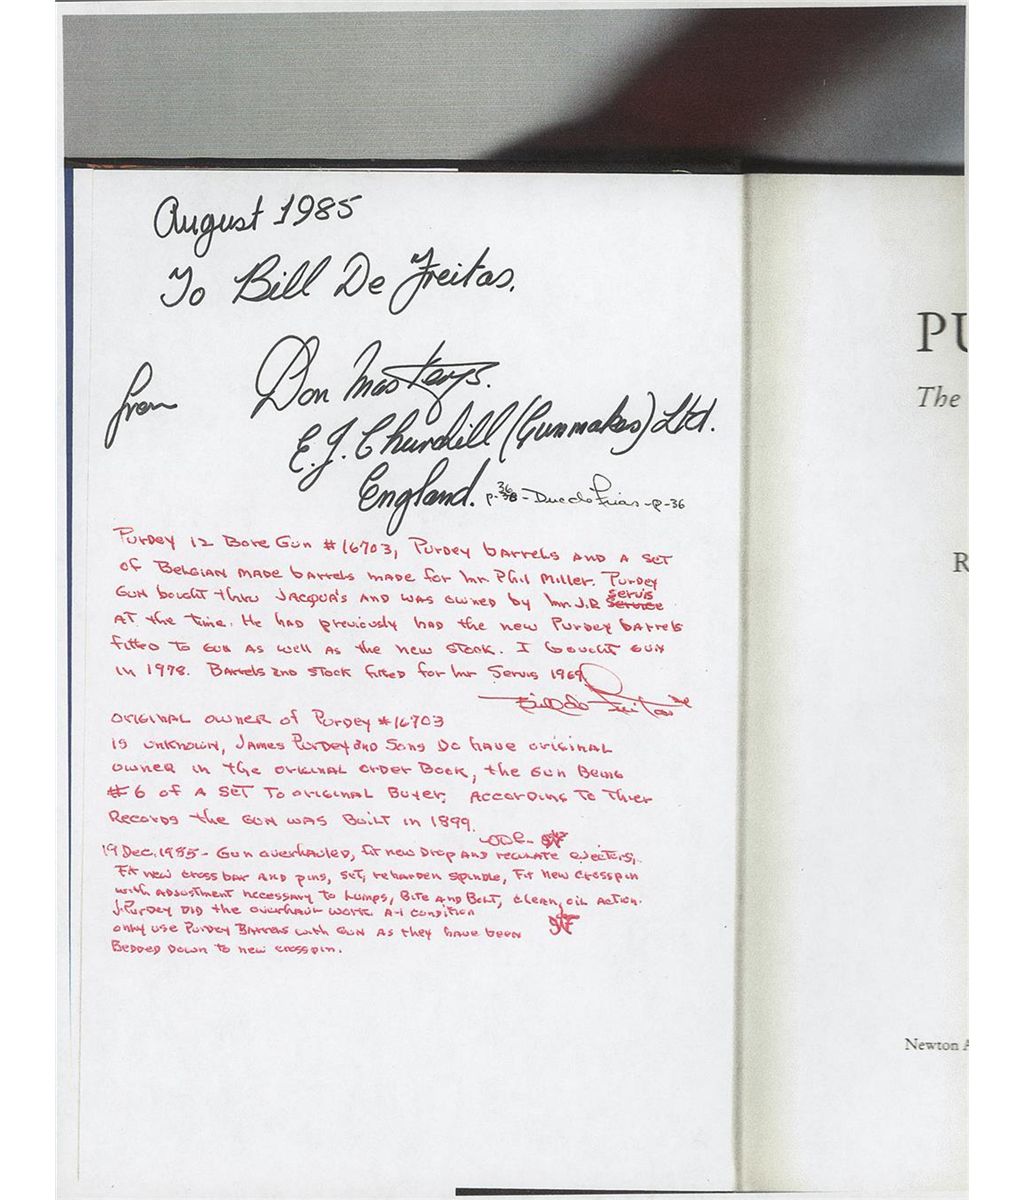 August 1985
To Bill De Freitas.
from Don Masters.
E.J. Churchill (Gunmakers) Ltd.
England. p-36 - Duc do Frias - p-36
Purdey 12 Bore Gun #16703, Purdey barrels and a set
of Belgian made barrels made for Mr Phil Miller. Purdey
Gun bought thru Jacqua's and was owned by Mr. J.R Servis
at the time. He had previously had the new Purdey barrels
fitted to gun as well as the new stock. I bought gun
in 1978. Barrels and stock fitted for Mr Servis 1969
Bill de Freitas
Original owner of Purdey #16703
is unknown, James Purdey and Sons Do have original
owner in the original order Book, the Gun Being
#6 of A Set To original Buyer. According To Thier
Records the Gun was Built in 1899.
19 Dec. 1985 - Gun overhauled, fit new Drop and regulate ejectors,
Fit new cross bar and pins, set, reharden spindle, Fit new crosspin
with adjustment necessary to Lumps, Bite and Bolt, clean, oil action.
J. Purdey Did the overhaul work. A-1 condition
only use Purdey Barrels with Gun as they have been
Bedded Down to new crosspin.
PU
The
R
Newton A